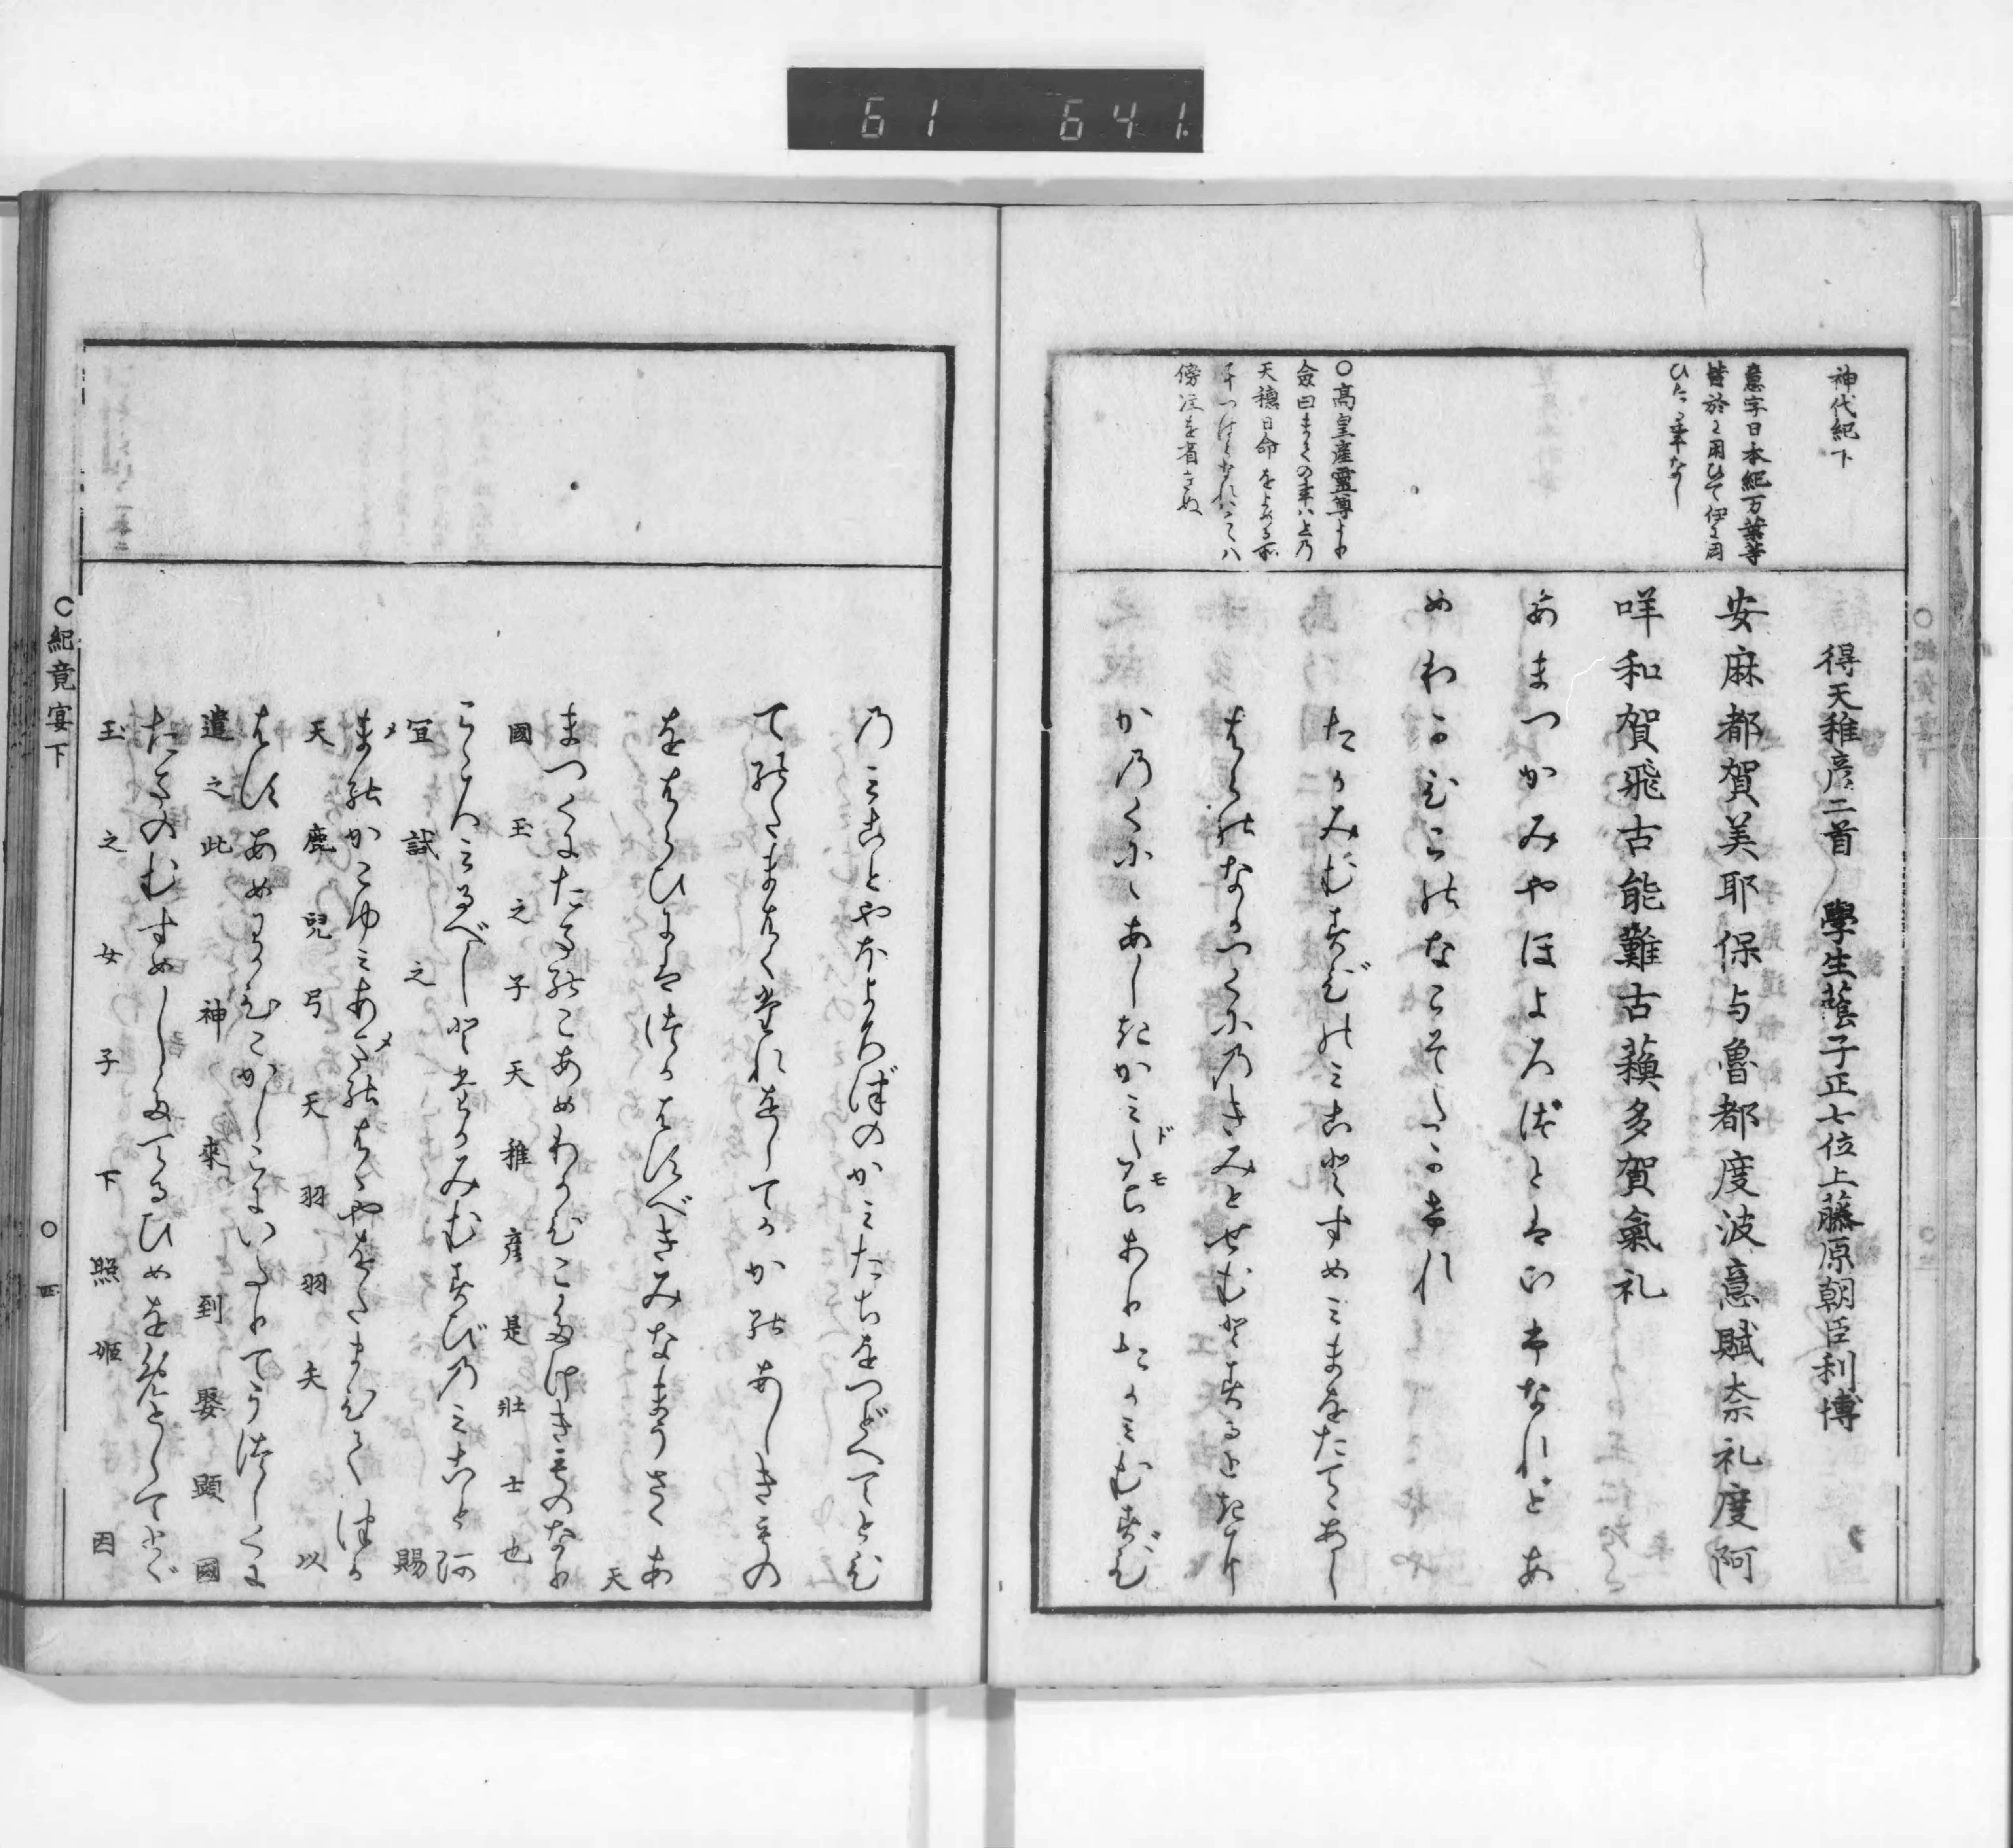 61 641.
神代紀下
意字日本紀万葉等
皆於に用ひて伊に用
ひたる事なし
○高皇産靈尊より
僉曰まての事ハ上乃
天穗日命をよめる歌
傍注を省きぬ
得天稚彦二首 學生蔭子正七位上藤原朝臣利博
安麻都賀美耶保与魯都度波意賦奈礼度阿
咩和賀飛古能難古蘓多賀氣礼
あまつかみやほよろづとはいふなれどあ
めわかひこのなこそたかけれ
たかみむすびのみこと すめみまをたてあし
はらのなかつくにのきみとせむとするときに
かのくにゝあしきかみドモあり たかみむすび
のみことやほよろづのかみたちをつどへてとひ
てのたまはくたれをしてかかのあしきものを
をはらひにはつかはすべきみなまうさくあ
天
まつくにたまのこあめわかひこたけきものなり
國玉之子天稚彦是壯士也
こゝろみるべしと たかみむすび乃みこと阿
宜試之 賜
まのかこゆみあまのはゝやをたまひてつか
天鹿兒弓天羽羽矢以
はすあめわかひこかしこにいたりてうつしくに
遣之此神來到娶顕國
たまのむすめしたてるひめをめとしてとゞ
玉之女子下照姫 因
○紀竟宴下
○四